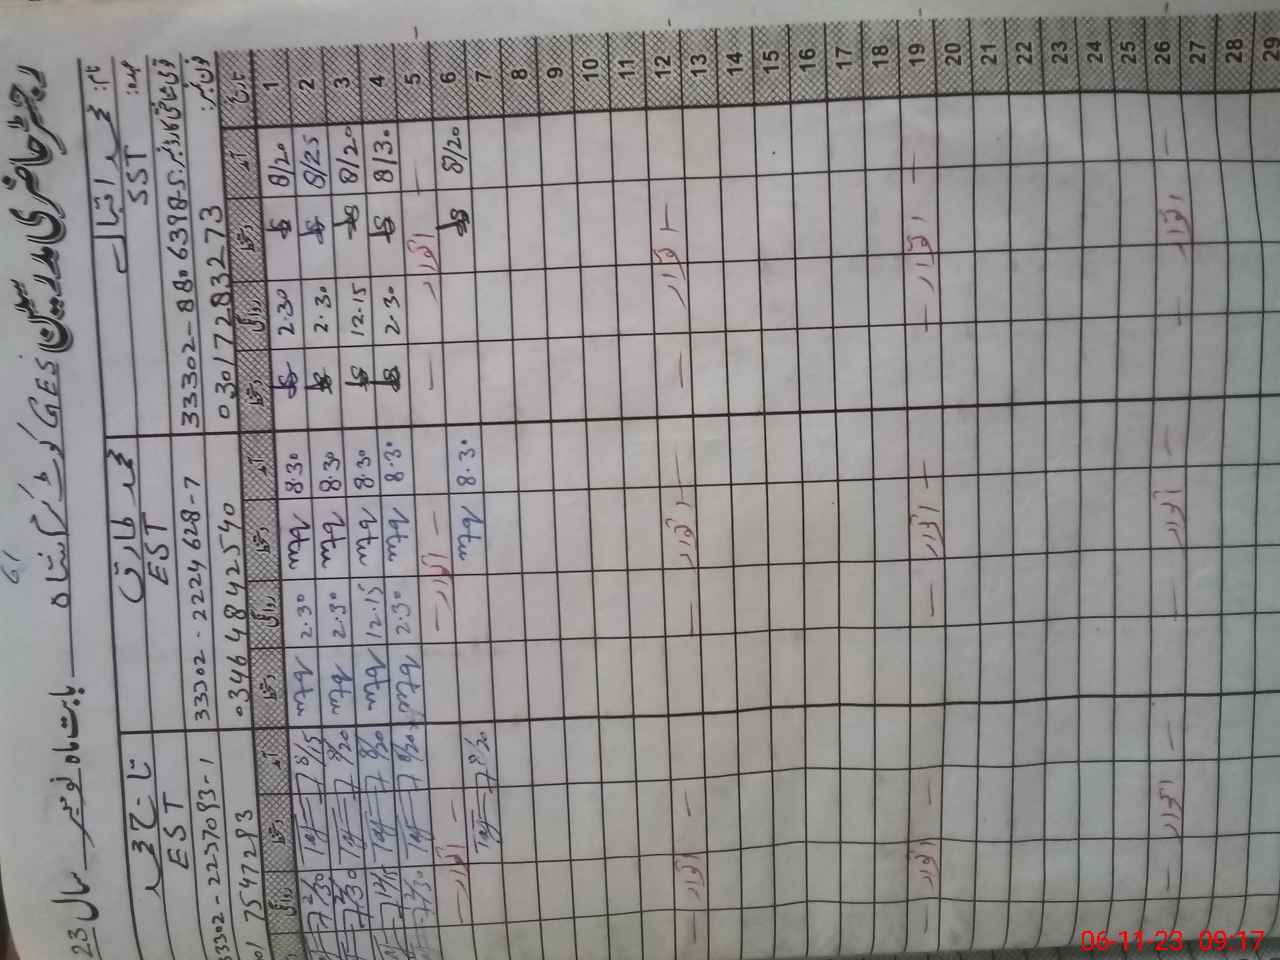 رجسٹر حاضری مدرسین سکول GES بابت ماہ نومبر سال 23
نام: محمد اقبال محمد طارق تاج محمد
عہدہ: SST EST EST
قومی شناختی کارڈ نمبر: 33302-8806398-5 33302-2224628-7 33302-2237093-1
فون نمبر: 03017283273 03464842540 01 7547293
تاریخ آمد دستخط روانگی دستخط آمد دستخط روانگی دستخط آمد دستخط روانگی
1 8/20 2.30 8.30 mtq 2.30 mtq 8/15 Taj 2/30
2 8/25 2.30 8.30 mtq 2.30 mtq 8/20 Taj 2/30
3 8/20 12.15 8.30 mtq 12.15 mtq 8/20 Taj 12/15
4 8/30 2.30 8.30 mtq 2.30 mtq 8/20 Taj 2/30
5 اتوار اتوار اتوار
6 8/20 8.30 mtq 8/20 Taj
7
8
9
10
11
12 اتوار اتوار اتوار
13
14
15
16
17
18
19 اتوار اتوار اتوار
20
21
22
23
24
25
26 اتوار اتوار اتوار
27
28
29
06-11-23 09:17